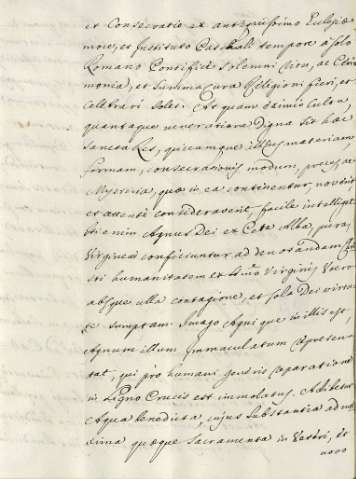 et Consecratio ex antiquissimo Ecclesiæ
more, et Instituto Paschali tempore à solo
Romano Pontifice solemni ritu, ac Cæri
monia, et summa cura Religioni fieri, et
celebrari solet. Et quam eximio cultu,
quantaque veneratione digna sit hæc
sancta Res, quicumque illius materiam,
formam, consecrationis modum, preces, ac
Mysteria, quæ in ea continentur, noverit
et attente consideraverit, facile intelliget
etenim Agnus Dei ex Cera alba, pura,
Virginea conficiuntur ad denotandam Chri
sti humanitatem ex Virginis Utero
absque ulla contagione, et sola Dei virtu
te sumptam. Imago Agni que in illis est,
Agnum illum Immaculatum represen
tat, qui pro humani generis reparatione
in Ligno Crucis est immolatus. Adhibetur
Aqua benedicta, cujus substantia ad ma
xima quæque Sacramenta in Vetteri, et
novo